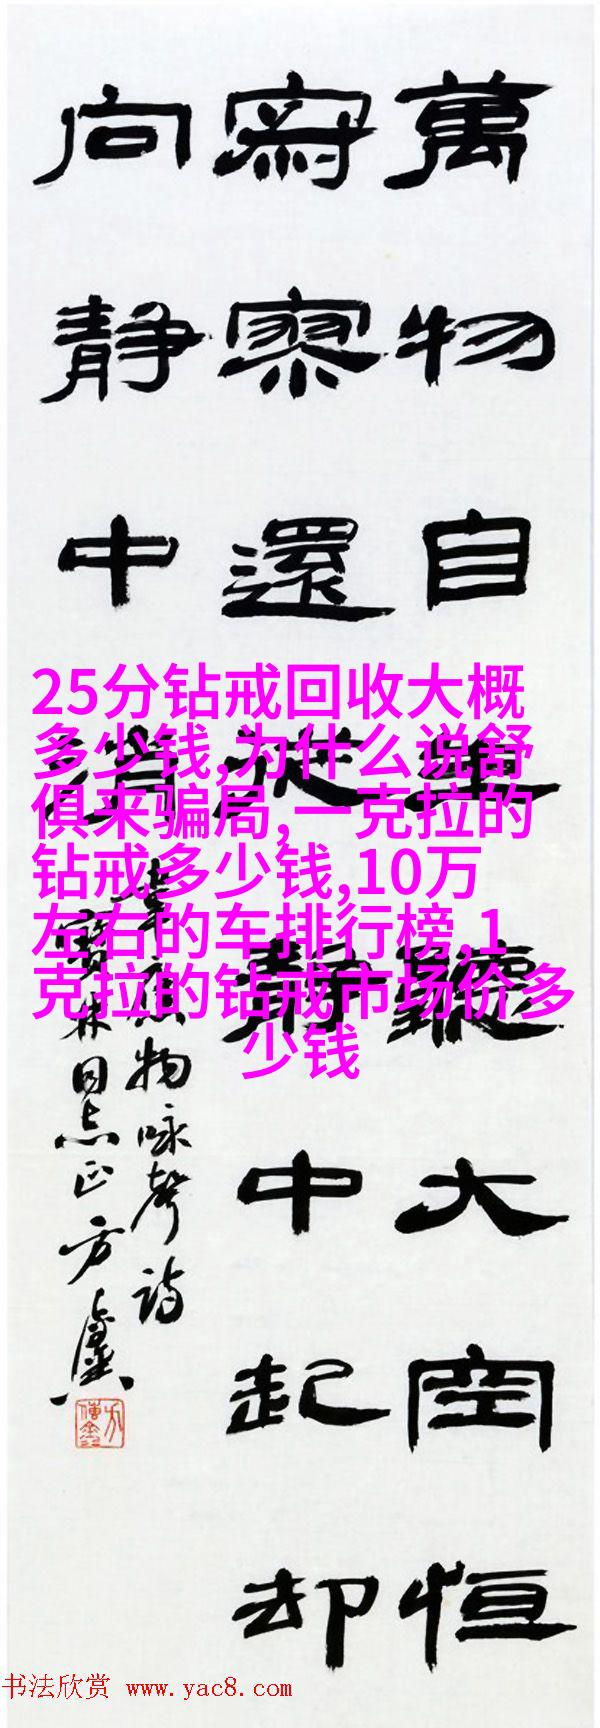 萬物自生聽大空恒
寂寥還從静中起却
向静中消
韋應物咏聲詩
寳林同志正方
25分钻戒回收大概
多少钱,为什么说舒
俱来骗局,一克拉的
钻戒多少钱,10万
左右的车排行榜,1
克拉的钻戒市场价多
少钱
书法欣赏 www.yac8.com